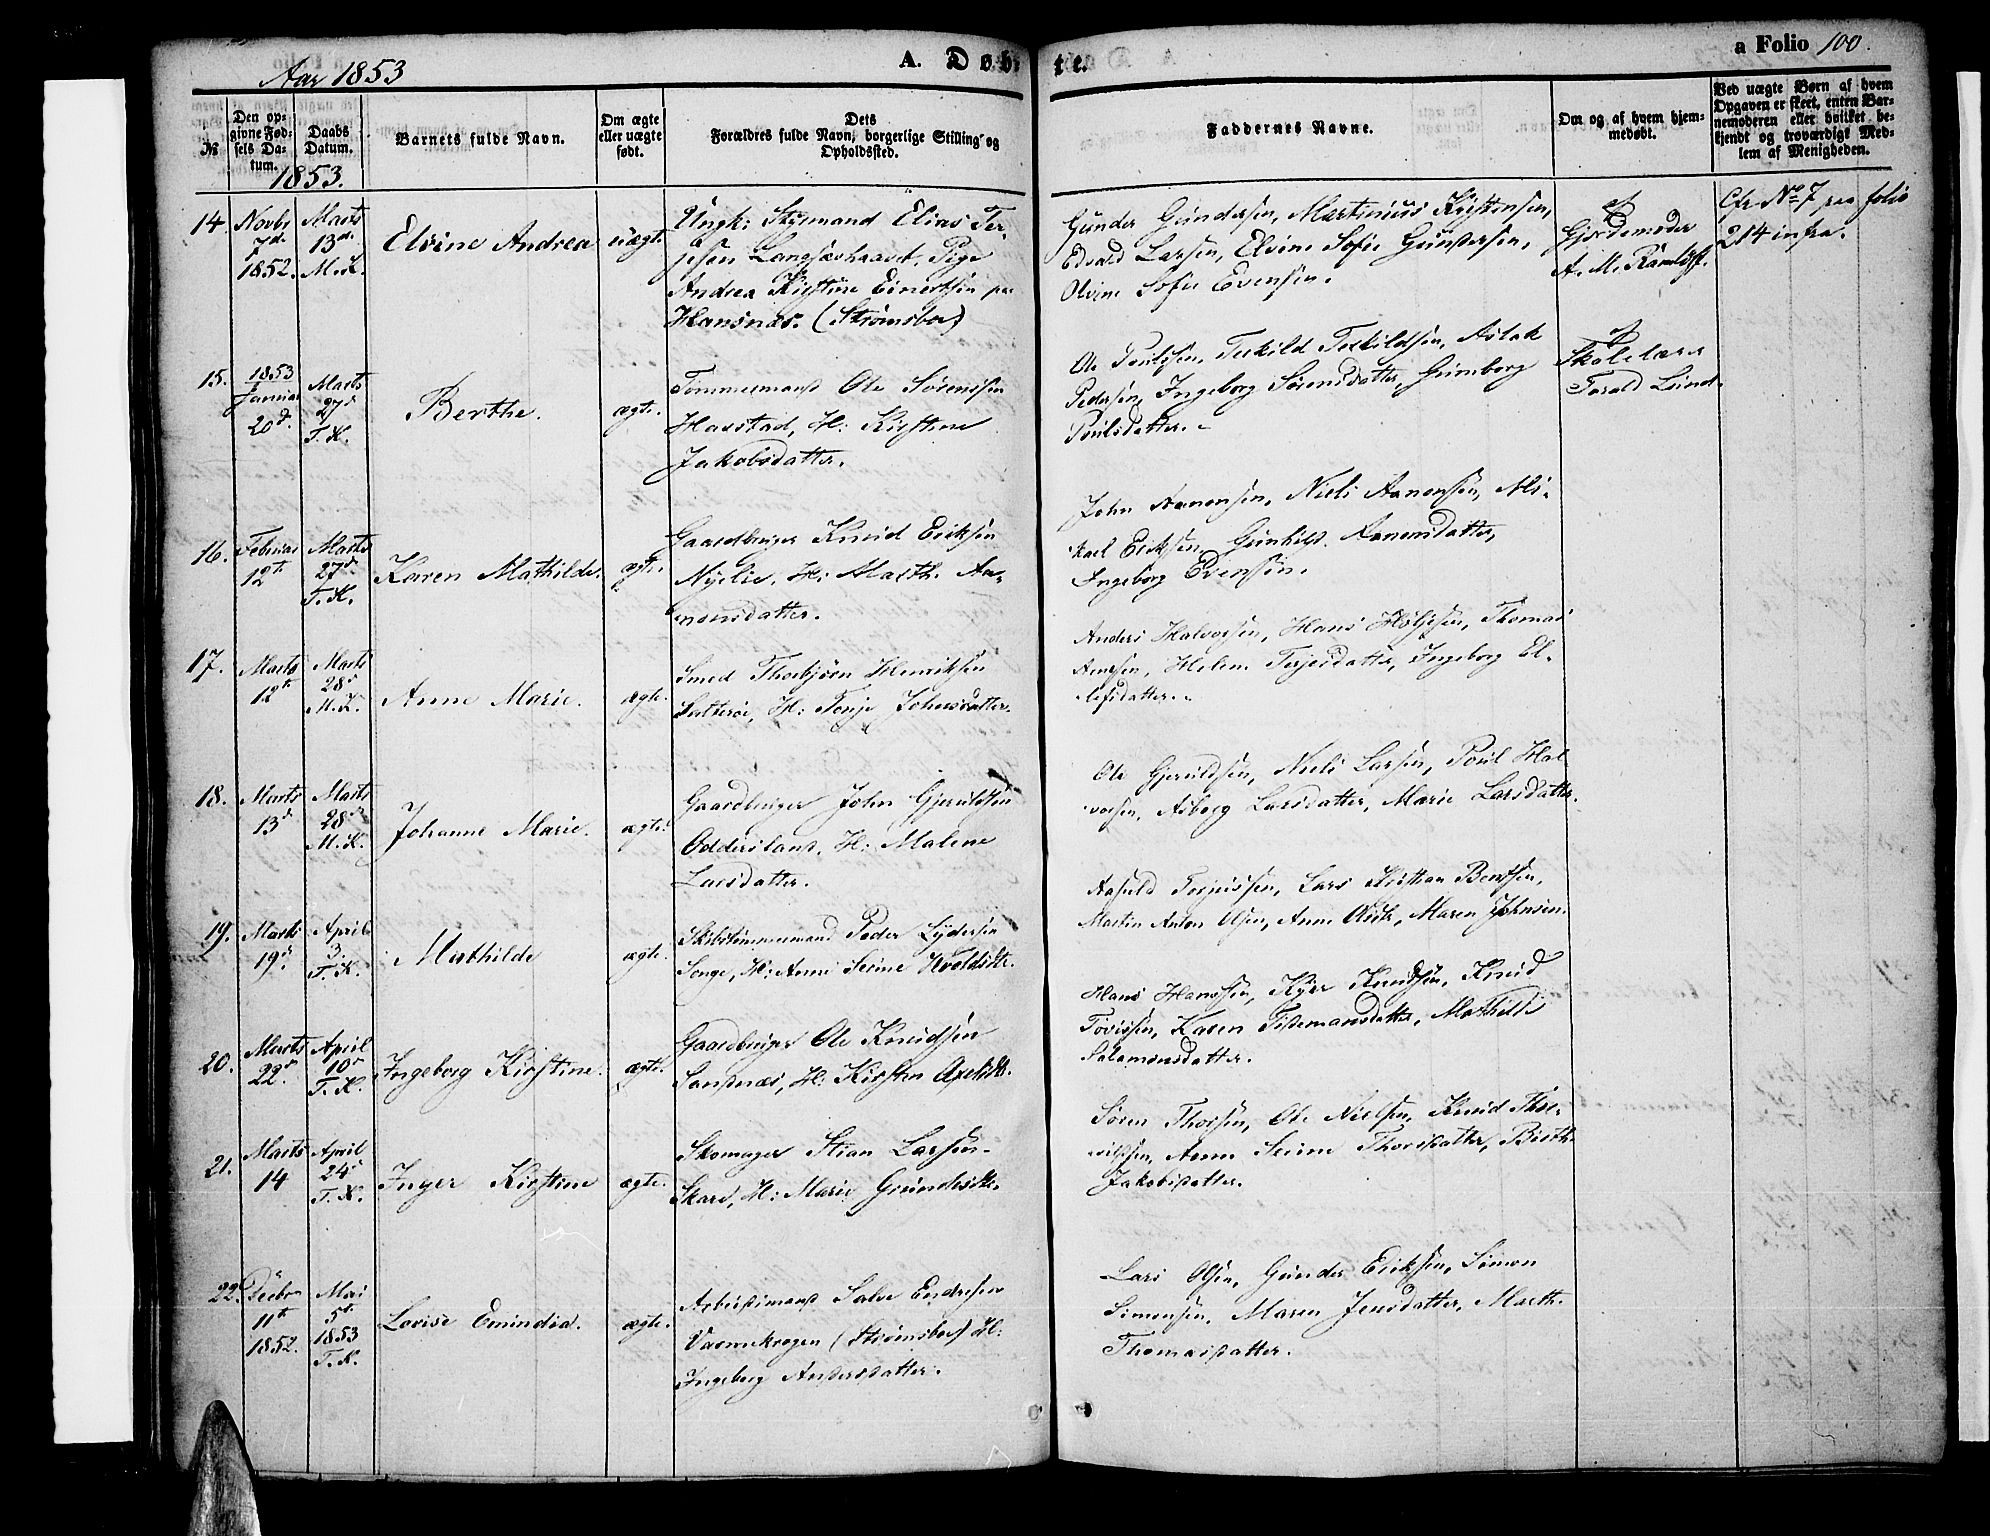 Aar 1853
A. Døbte.
a Folio 100.
№
Den opgivne Fødsels Datum.
Daabs Datum.
Barnets fulde Navn.
Om ægte eller uægte født.
Dets Forældres fulde Navn, borgerlige Stilling og Opholdssted.
Faddernes Navne.
Om og af hvem hjemmedøbt.
Ved uægte Børn af hvem Opgaven er skeet, enten Barnemoderen eller hvilket bekjendt og troværdigt Medlem af Menigheden.
1853.
14.
Novbr
7de
1852.
Marts
13de
M.K.
Elvine Andrea
uægte
Ungk: Styrmand Elias Ter-
jesen Langsævhaavet, Pige
Andrea Kirstine Einertsen paa
Hansnæs. (Strømsboe)
Gunder Gundersen, Martinius Kirstensen,
Edvard Larsen, Elvine Sofie Gundersen,
Olvine Sofie Evensen.
af
Gjordemoder
A. M.
Cfr No 7 paa folio
214 infra.
15.
1853
Januar
20d.
Marts
27d
T.K.
Berthe.
ægte.
Tømmermand Ole Sørenssen
Havstad, H: Kirstine
Jakobsdatter.
Ole Poulssen, Terkild Terkildsen, Aslak
Pedersen, Ingeborg Sørensdatter, Gunborg
Poulsdatter.
af
Skolelærer
Tarald Lund.
16.
Februar
12te
Marts
27d
T.K.
Karen Mathilde.
ægte.
Gaardbruger Knud Eriksen
Nyelie, H: Marth. Aa-
nonsdatter.
John Aanonsen, Niels Aanonsen, Mi-
kael Eriksen, Gunhild Aanonsdatter,
Ingeborg Evensen.
17.
Marts
12te
Marts
28d
M.K.
Anne Marie.
ægte.
Smed Thorbjørn Henriksen
H: Tonje Johnsdatter.
Anders Halvorsen, Hans Høljesen, Thomas
Helene Terjesdatter, Ingeborg El-
lefsdatter.
18.
Marts
13d
Marts
28d
M.K.
Johanne Marie.
ægte.
Gaardbruger John Gjeruldsen
Oddersland, H: Malene
Larsdatter.
Ole Gjeruldsen, Niels Larsen, Poul Hal-
vorsen, Asborg Larsdatter, Marie Larsdatter.
19.
Marts
19d.
April
3.
T.K.
Mathilde
ægte.
Skibstømmermand Peder Lydersen
Songe, H: Anne Serine
Aasuld Terjeussen, Lars Kristian Bentsen,
Martin Anton Olsen, Anne Maren Johnsen.
20.
Marts
22d.
April
10d
T.K.
Ingeborg Kirstine.
ægte.
Gaardbruger Ole Knudsen
Sandnæs, H: Kirsten Axelsdtr.
Hans Hanssen, Knudsen, Knud
Tovissen, Karen Tidemansdatter, Mathilde
Salamonsdatter.
21.
Marts
14
April
24d
T.K.
Inger Kirstine
ægte.
Skomager Stian Larsen
Skare, H: Marie
Søren Thorsen, Ole Nielsen, Knud Thor-
Anne Serine Thorsdatter, Berth.
Jakobsdatter.
22.
Decbr
11te
1852.
Mai
5te
1853
T.K.
Lovise Emindia.
ægte.
Arbeidsmand Salve Endresen
Varmekrogen (Strømsboe) H:
Ingeborg Andersdatter.
Lars Olsen, Gunder Eriksen, Simon
Simonsen, Maren Jensdatter, Marth.
Thomasdatter.